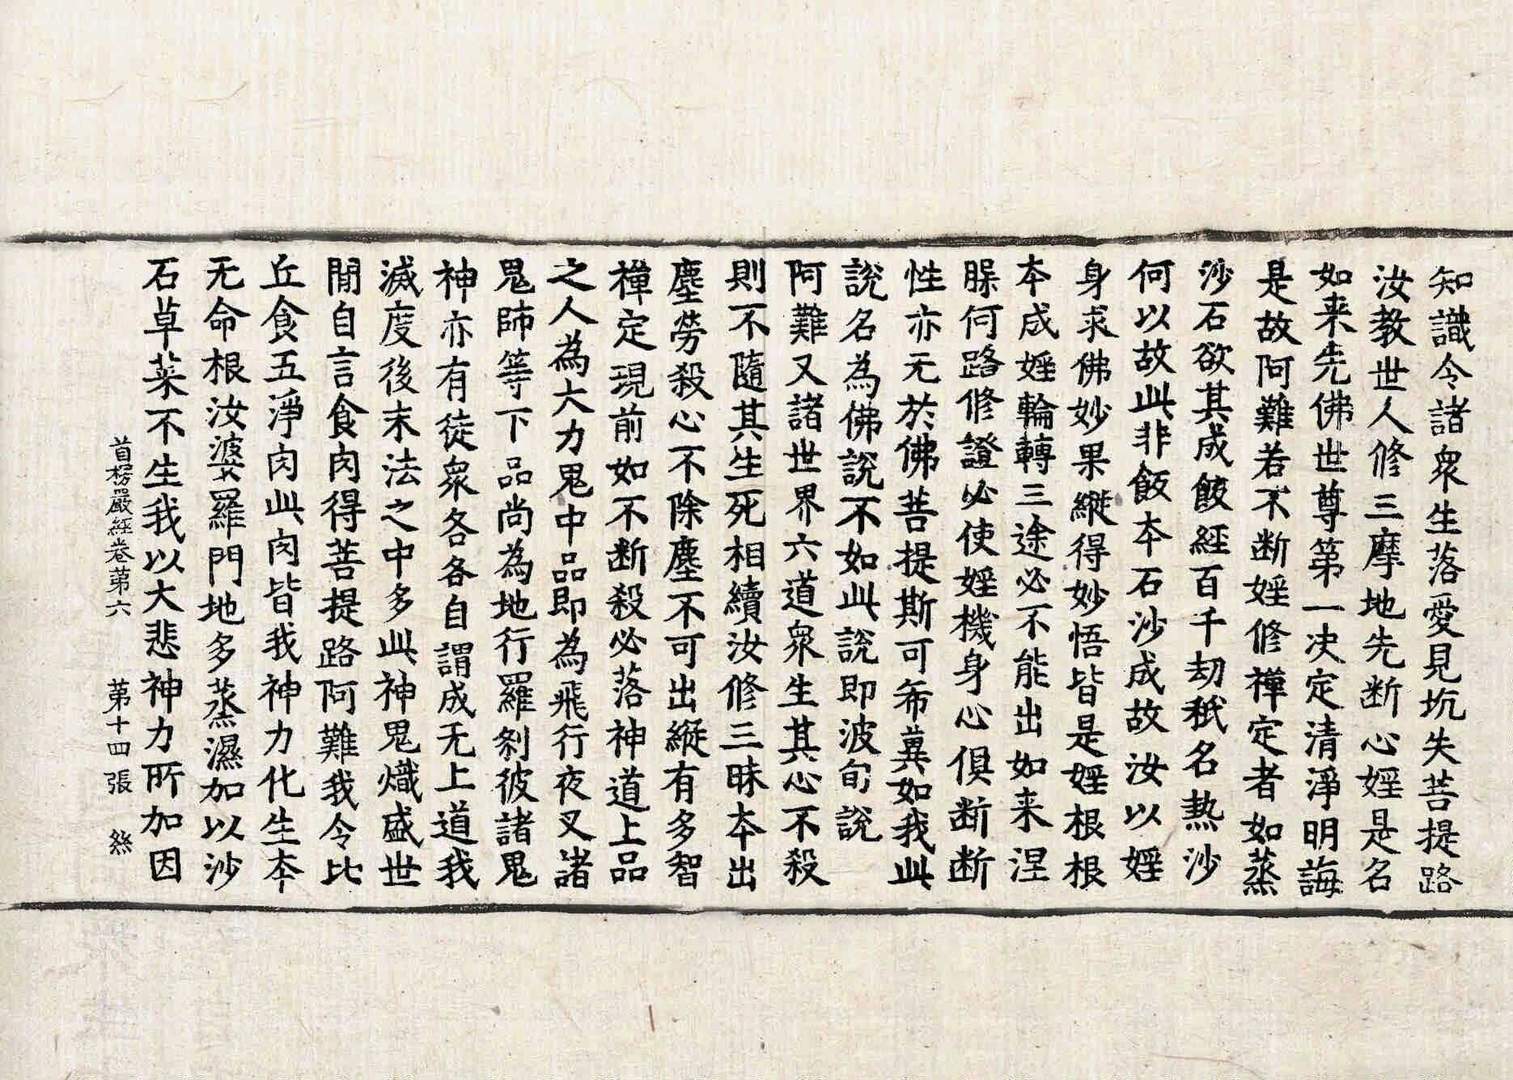 知識令諸衆生落愛見坑失菩提路
汝教世人修三摩地先断心婬是名
如来先佛世尊第一决定清淨明誨
是故阿難若不断婬修禅定者如蒸
沙石欲其成飯經百千劫秖名熱沙
何以故此非飯夲石沙成故汝以婬
身求佛妙果縱得妙悟皆是婬根根
夲成婬輪轉三途必不能出如来涅
槃何路修證必使婬機身心俱断断
性亦无於佛菩提斯可希兾如我此
説名為佛説不如此説即波旬説
阿難又諸世界六道衆生其心不殺
則不隨其生死相續汝修三昧夲出
塵勞殺心不除塵不可出縱有多智
禅定現前如不断殺必落神道上品
之人為大力鬼中品即為飛行夜叉諸
鬼師等下品尚為地行羅刹彼諸鬼
神亦有徒衆各各自謂成无上道我
滅度後末法之中多此神鬼熾盛世
間自言食肉得菩提路阿難我令比
丘食五淨肉此肉皆我神力化生夲
无命根汝婆羅門地多蒸濕加以沙
石草菜不生我以大悲神力所加因
首楞嚴經卷苐六 苐十四張 絲